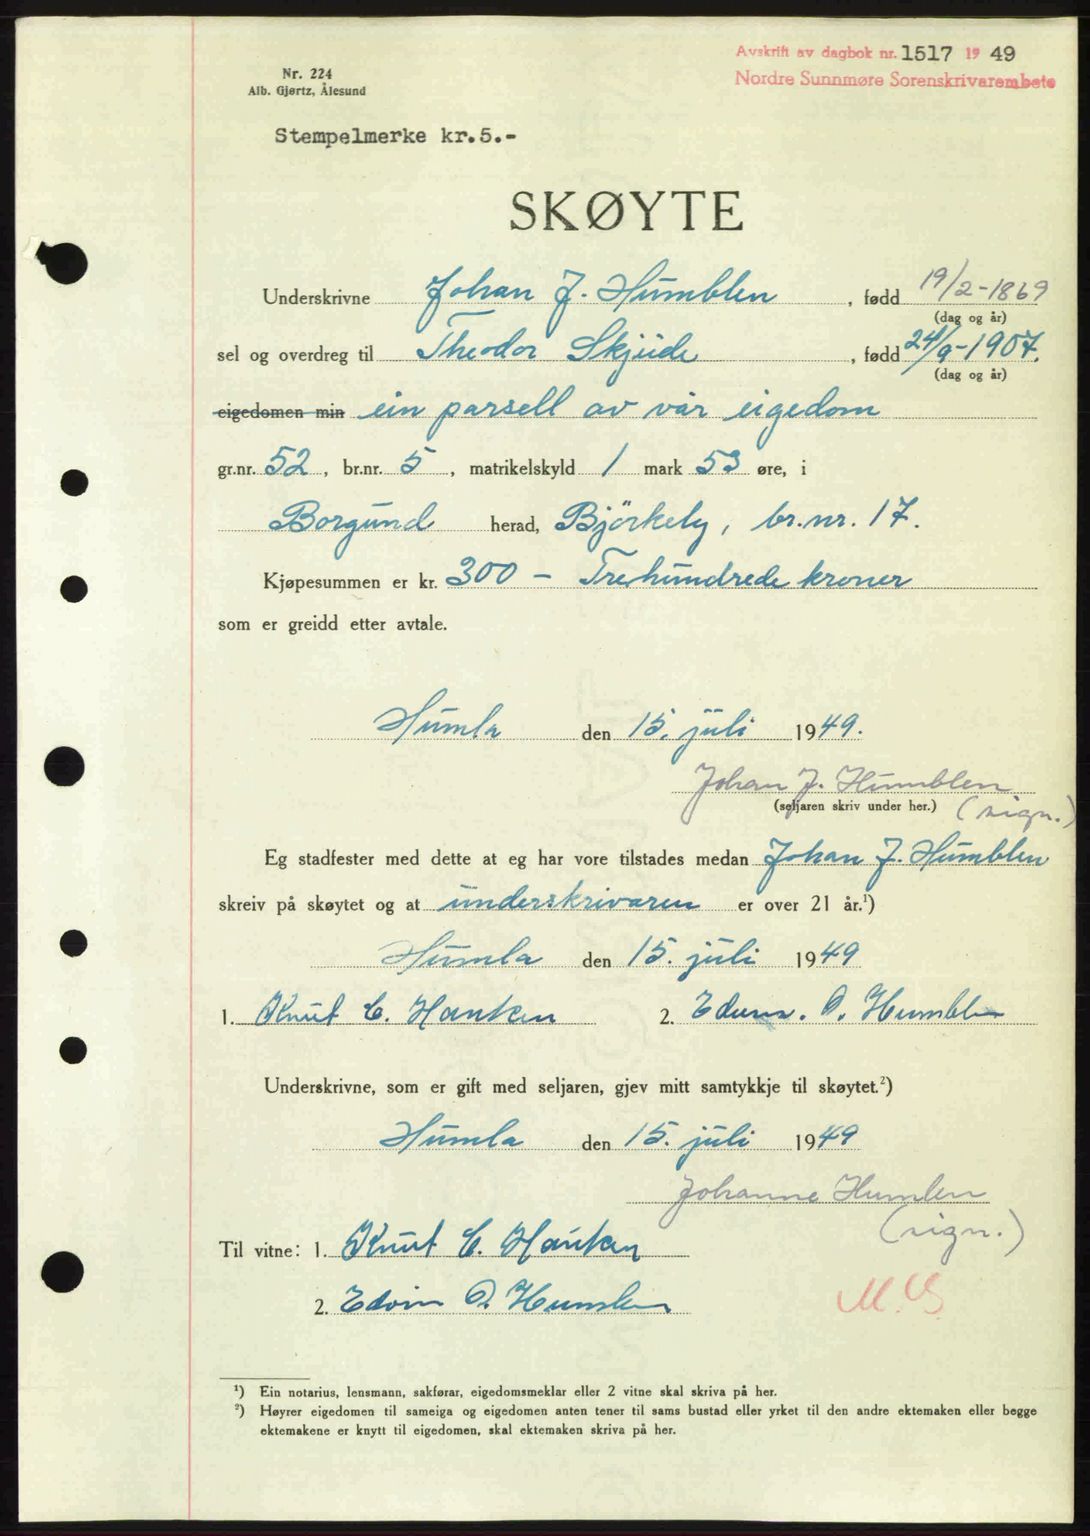 Avskrift av dagbok nr. 1517 19 49
Nordre Sunnmøre Sorenskrivarembete
Nr. 224
Alb. Gjørtz, Ålesund
Stempelmerke kr.5.-
SKØYTE
Underskrivne Johan J. Humblen, fødd 19/2-1869
(dag og år)
sel og overdreg til Theodor Skjude, fødd 24/9-1907.
(dag og år)
eigedomen min ein parsell av vår eigedom
gr.nr. 52, br.nr. 5, matrikelskyld 1 mark 53 øre, i
Borgund herad, Björkely, br.nr. 17.
Kjøpesummen er kr. 300 - Trehundrede kroner
som er greidd etter avtale.
Humla den 15. juli 1949.
Johan J. Humblen
(seljaren skriv under her.) (sign.)
Eg stadfester med dette at eg har vore tilstades medan Johan J. Humblen
skreiv på skøytet og at underskrivaren er over 21 år.¹)
Humla den 15. juli 1949
1. Knut C. Hanken 2. Edvin. O. Humblen
Underskrivne, som er gift med seljaren, gjev mitt samtykkje til skøytet.²)
Humla den 15. juli 1949
Johanne Humlen
(sign.)
Til vitne: 1. Knut C. Hanken
2. Edvin O. Humblen
¹) Ein notarius, lensmann, sakførar, eigedomsmeklar eller 2 vitne skal skriva på her.
²) Høyrer eigedomen til sameiga og eigedomen anten tener til sams bustad eller yrket til den andre ektemaken eller begge
ektemakene er knytt til eigedomen, skal ektemaken skriva på her.